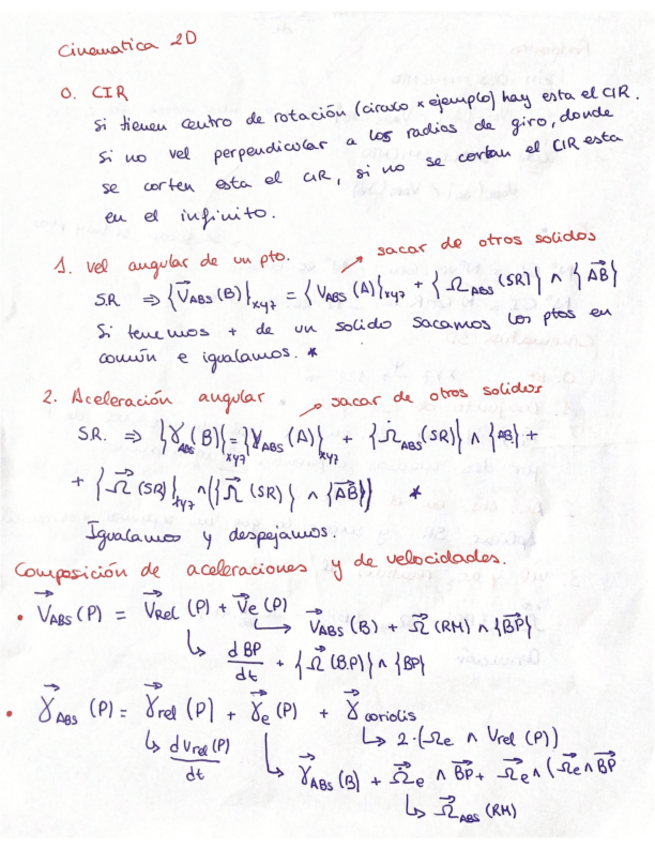 Cinematica 2D
0. CIR
Si tienen centro de rotación (circulo × ejemplo) hay esta el CIR.
Si no vel perpendicular a los radios de giro, donde
se corten esta el CIR, si no se cortan el CIR esta
en el infinito.
1. Vel angular de un pto. ↗ sacar de otros solidos
S.R ⇒ {V⃗ABS (B)}xyz = {VABS (A)}xyz + {ΩABS (SR)} ∧ {A⃗B}
Si tenemos + de un solido sacamos los ptos en
común e igualamos. *
2. Aceleración angular ↗ sacar de otros solidos
S.R. ⇒ {γABS (B)}xyz = {γABS (A)}xyz + {Ω̇ABS (SR)} ∧ {AB} +
+ {Ω⃗ (SR)}xyz ∧ ({Ω⃗ (SR)} ∧ {A⃗B}) *
Igualamos y despejamos.
Composición de aceleraciones y de velocidades.
• V⃗ABS (P) = V⃗Rel (P) + V⃗e (P)
↳ V⃗ABS (B) + Ω⃗ (RM) ∧ {B⃗P}
↳ d BP/dt + {Ω⃗ (B.P)} ∧ {BP}
• γ⃗ABS (P) = γ⃗rel (P) + γ⃗e (P) + γ⃗coriolis
↳ 2·(Ωe ∧ Vrel (P))
↳ d Vrel (P)/dt
↳ γ⃗ABS (B) + Ω̇⃗e ∧ B⃗P + Ω⃗e ∧ (Ω⃗e ∧ B⃗P
↳ Ω⃗ABS (RM)